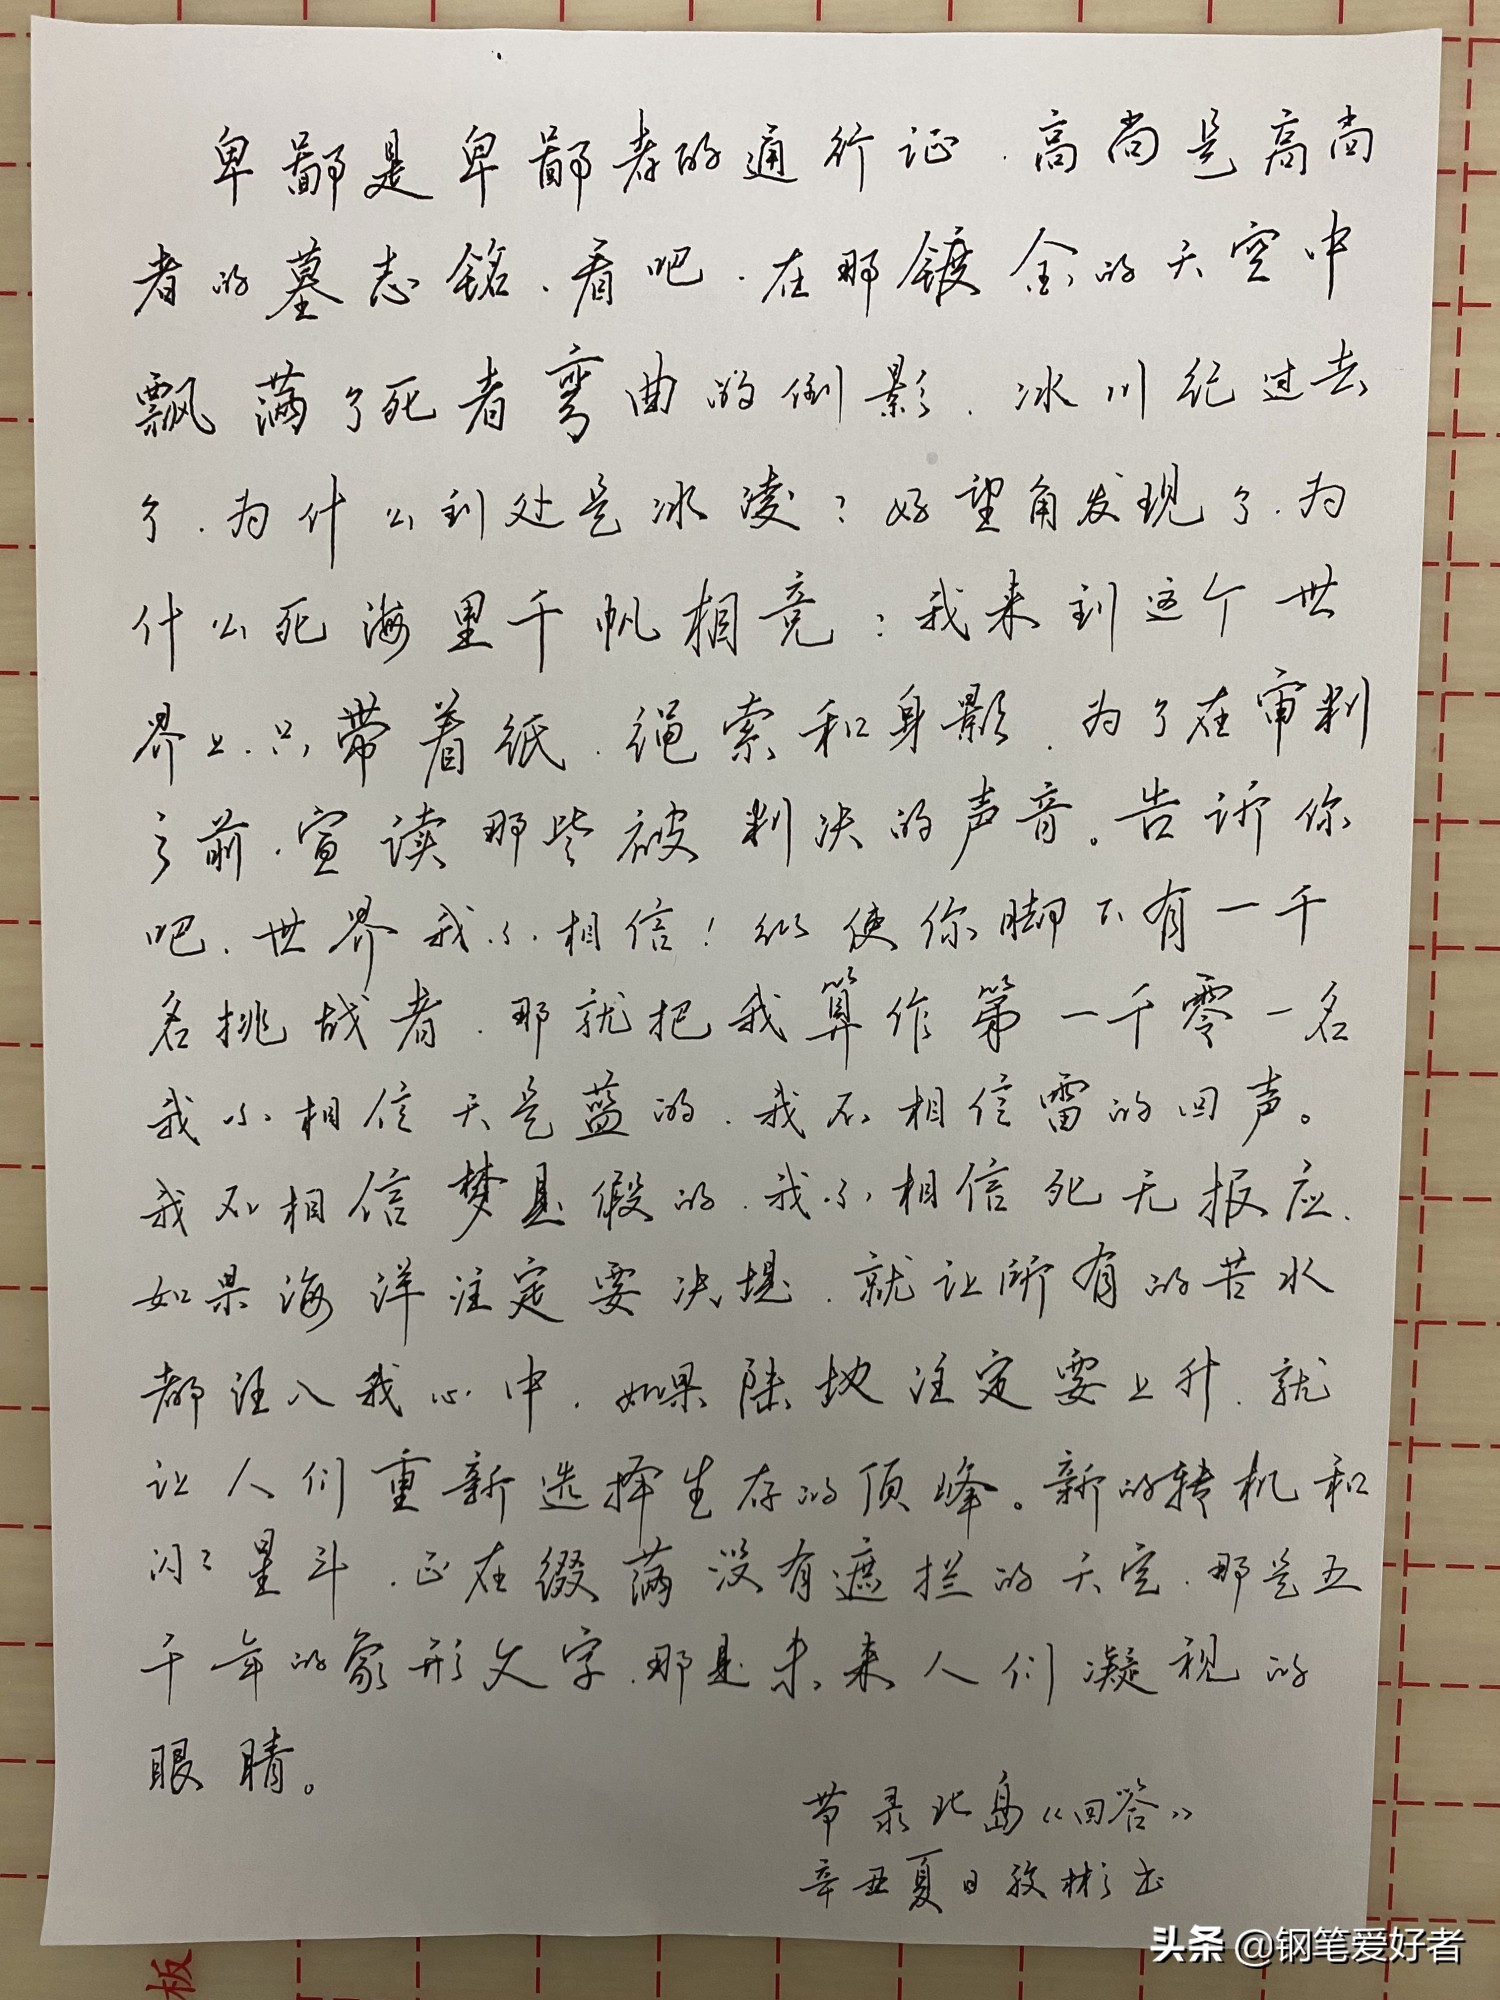 卑鄙是卑鄙者的通行证、高尚是高尚
者的墓志铭、看吧、在那镀金的天空中
飘满了死者弯曲的倒影、冰川纪过去
了、为什么到处是冰凌？好望角发现了、为
什么死海里千帆相竞？我来到这个世
界上、只带着纸、绳索和身影、为了在审判
之前、宣读那些被判决的声音。告诉你
吧、世界我不相信！纵使你脚下有一千
名挑战者、那就把我算作第一千零一名
我不相信天是蓝的、我不相信雷的回声。
我不相信梦是假的、我不相信死无报应、
如果海洋注定要决堤、就让所有的苦水
都注入我心中、如果陆地注定要上升、就
让人们重新选择生存的顶峰。新的转机和
闪々星斗、正在缀满没有遮拦的天空、那是五
千年的象形文字、那是未来人们凝视的
眼睛。
节录北岛《回答》
辛丑夏日牧彬书
头条 @钢笔爱好者
板